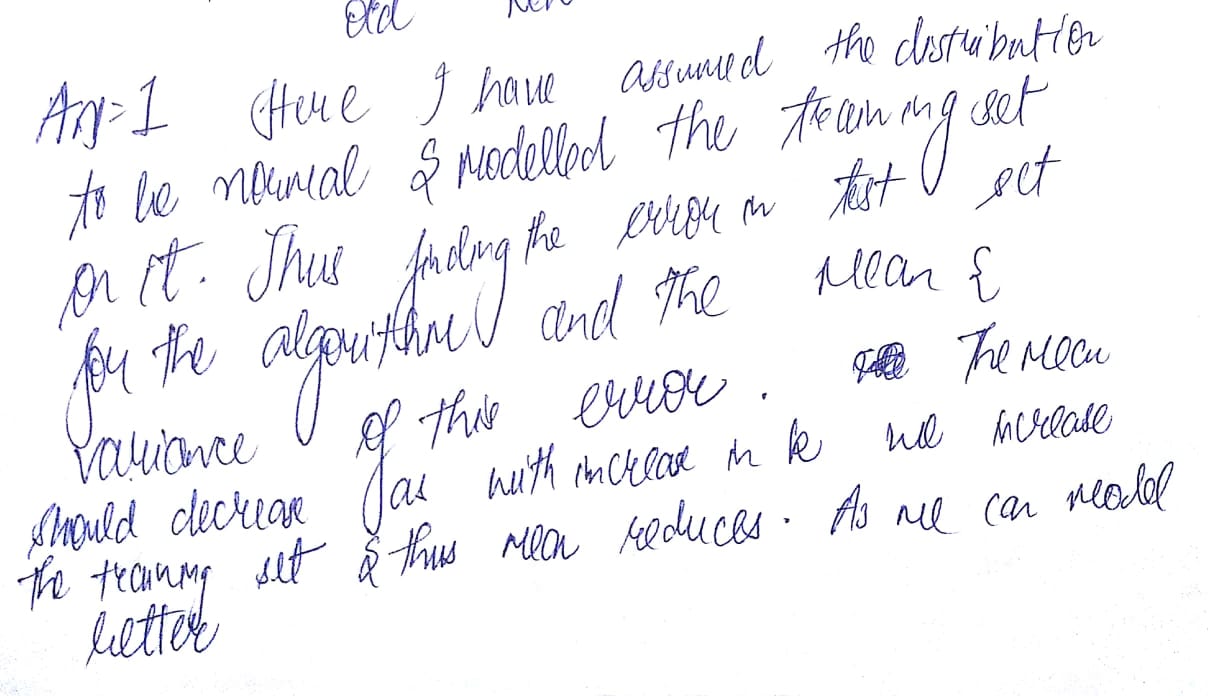 Old
Ans=1 Here I have assumed the distribution
to be normal & modelled the training set
on it. Thus finding the error in test set
for the algorithm and the mean &
variance of this error. The mean
should decrease as with increase in k we increase
the training set & thus mean reduces. As we can model
better